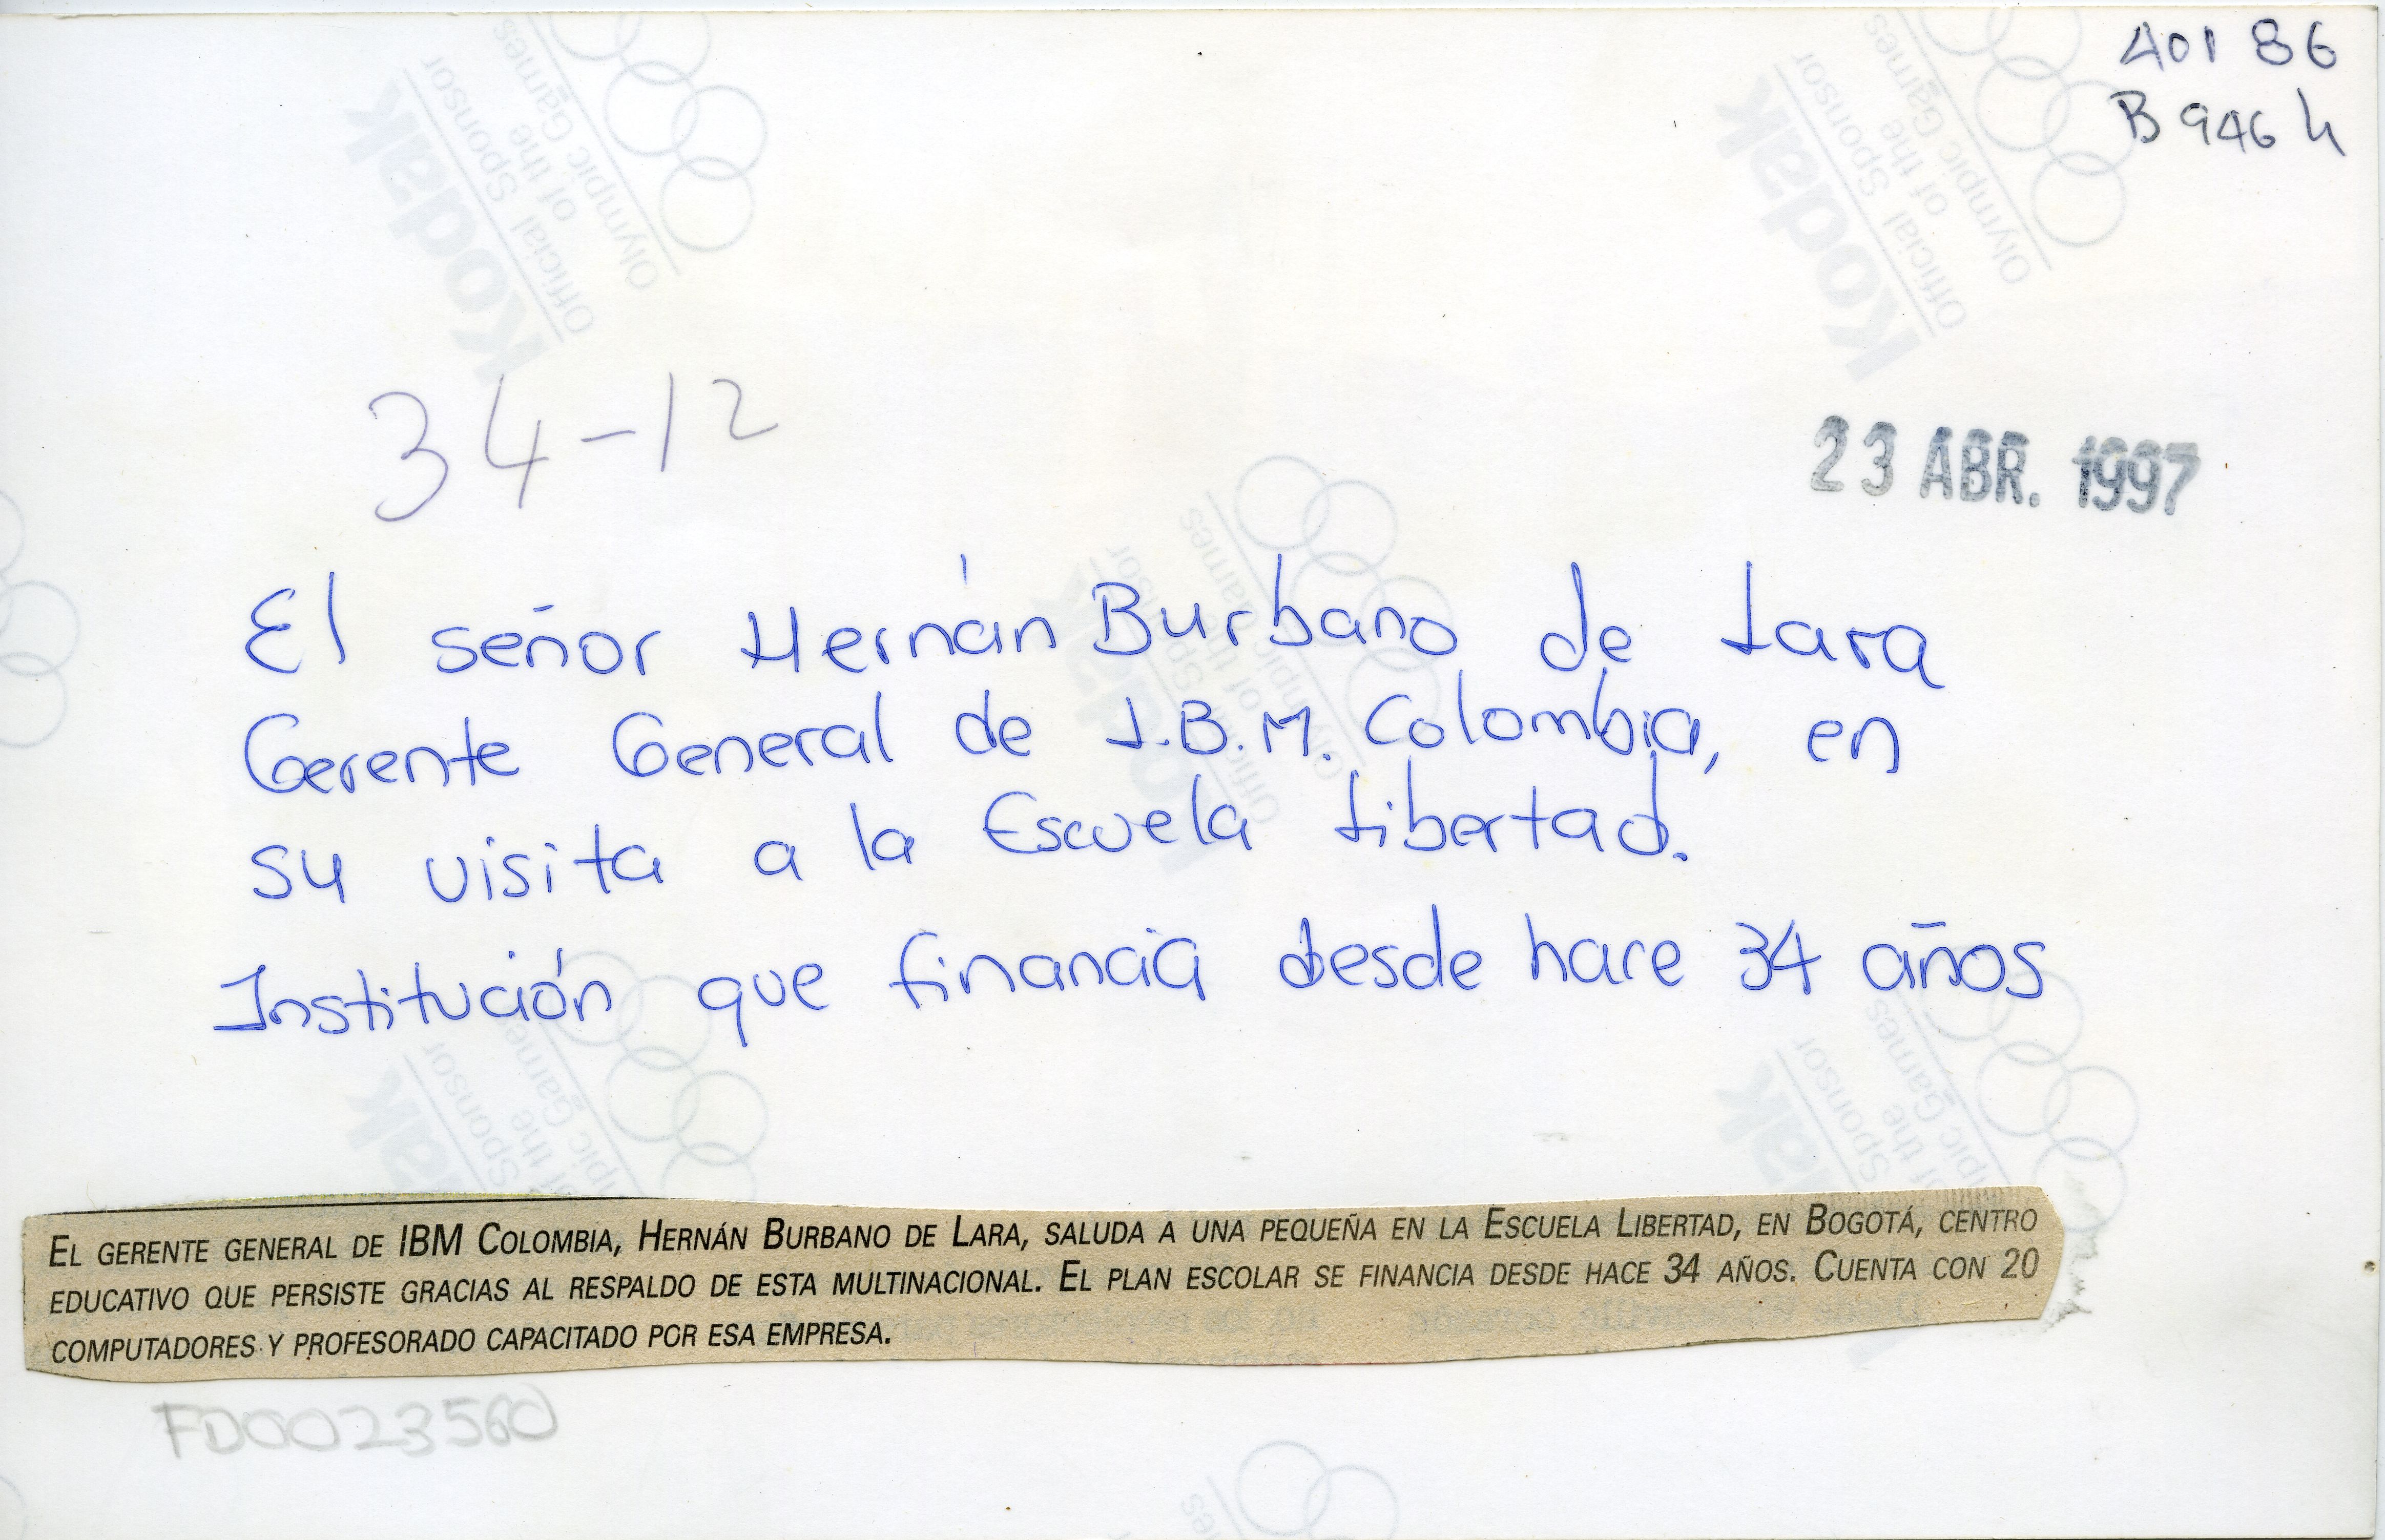 401 86
B 946 h
34-12
23 ABR. 1997
El señor Hernán Burbano de Lara
Gerente General de I.B.M. Colombia, en
su visita a la Escuela Libertad.
Institución que financia desde hace 34 años
EL GERENTE GENERAL DE IBM COLOMBIA, HERNÁN BURBANO DE LARA, SALUDA A UNA PEQUEÑA EN LA ESCUELA LIBERTAD, EN BOGOTÁ, CENTRO
EDUCATIVO QUE PERSISTE GRACIAS AL RESPALDO DE ESTA MULTINACIONAL. EL PLAN ESCOLAR SE FINANCIA DESDE HACE 34 AÑOS. CUENTA CON 20
COMPUTADORES Y PROFESORADO CAPACITADO POR ESA EMPRESA.
FD0023560
Kodak
Official Sponsor
of the
Olympic Games
Kodak
Official Sponsor
of the
Olympic Games